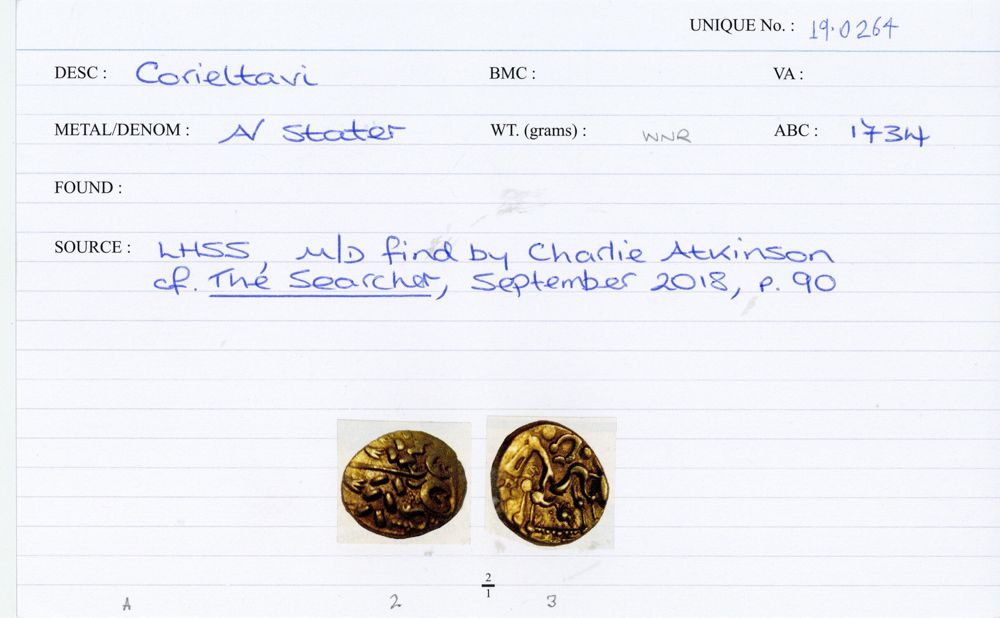 UNIQUE No. : 19.0264
DESC : Corieltavi BMC : VA :
METAL/DENOM : AV Stater WT. (grams) : WNR ABC : 1734
FOUND :
SOURCE : LHSS, M/D find by Charlie Atkinson
cf. The Searcher, September 2018, p. 90
2
1
A 2 3